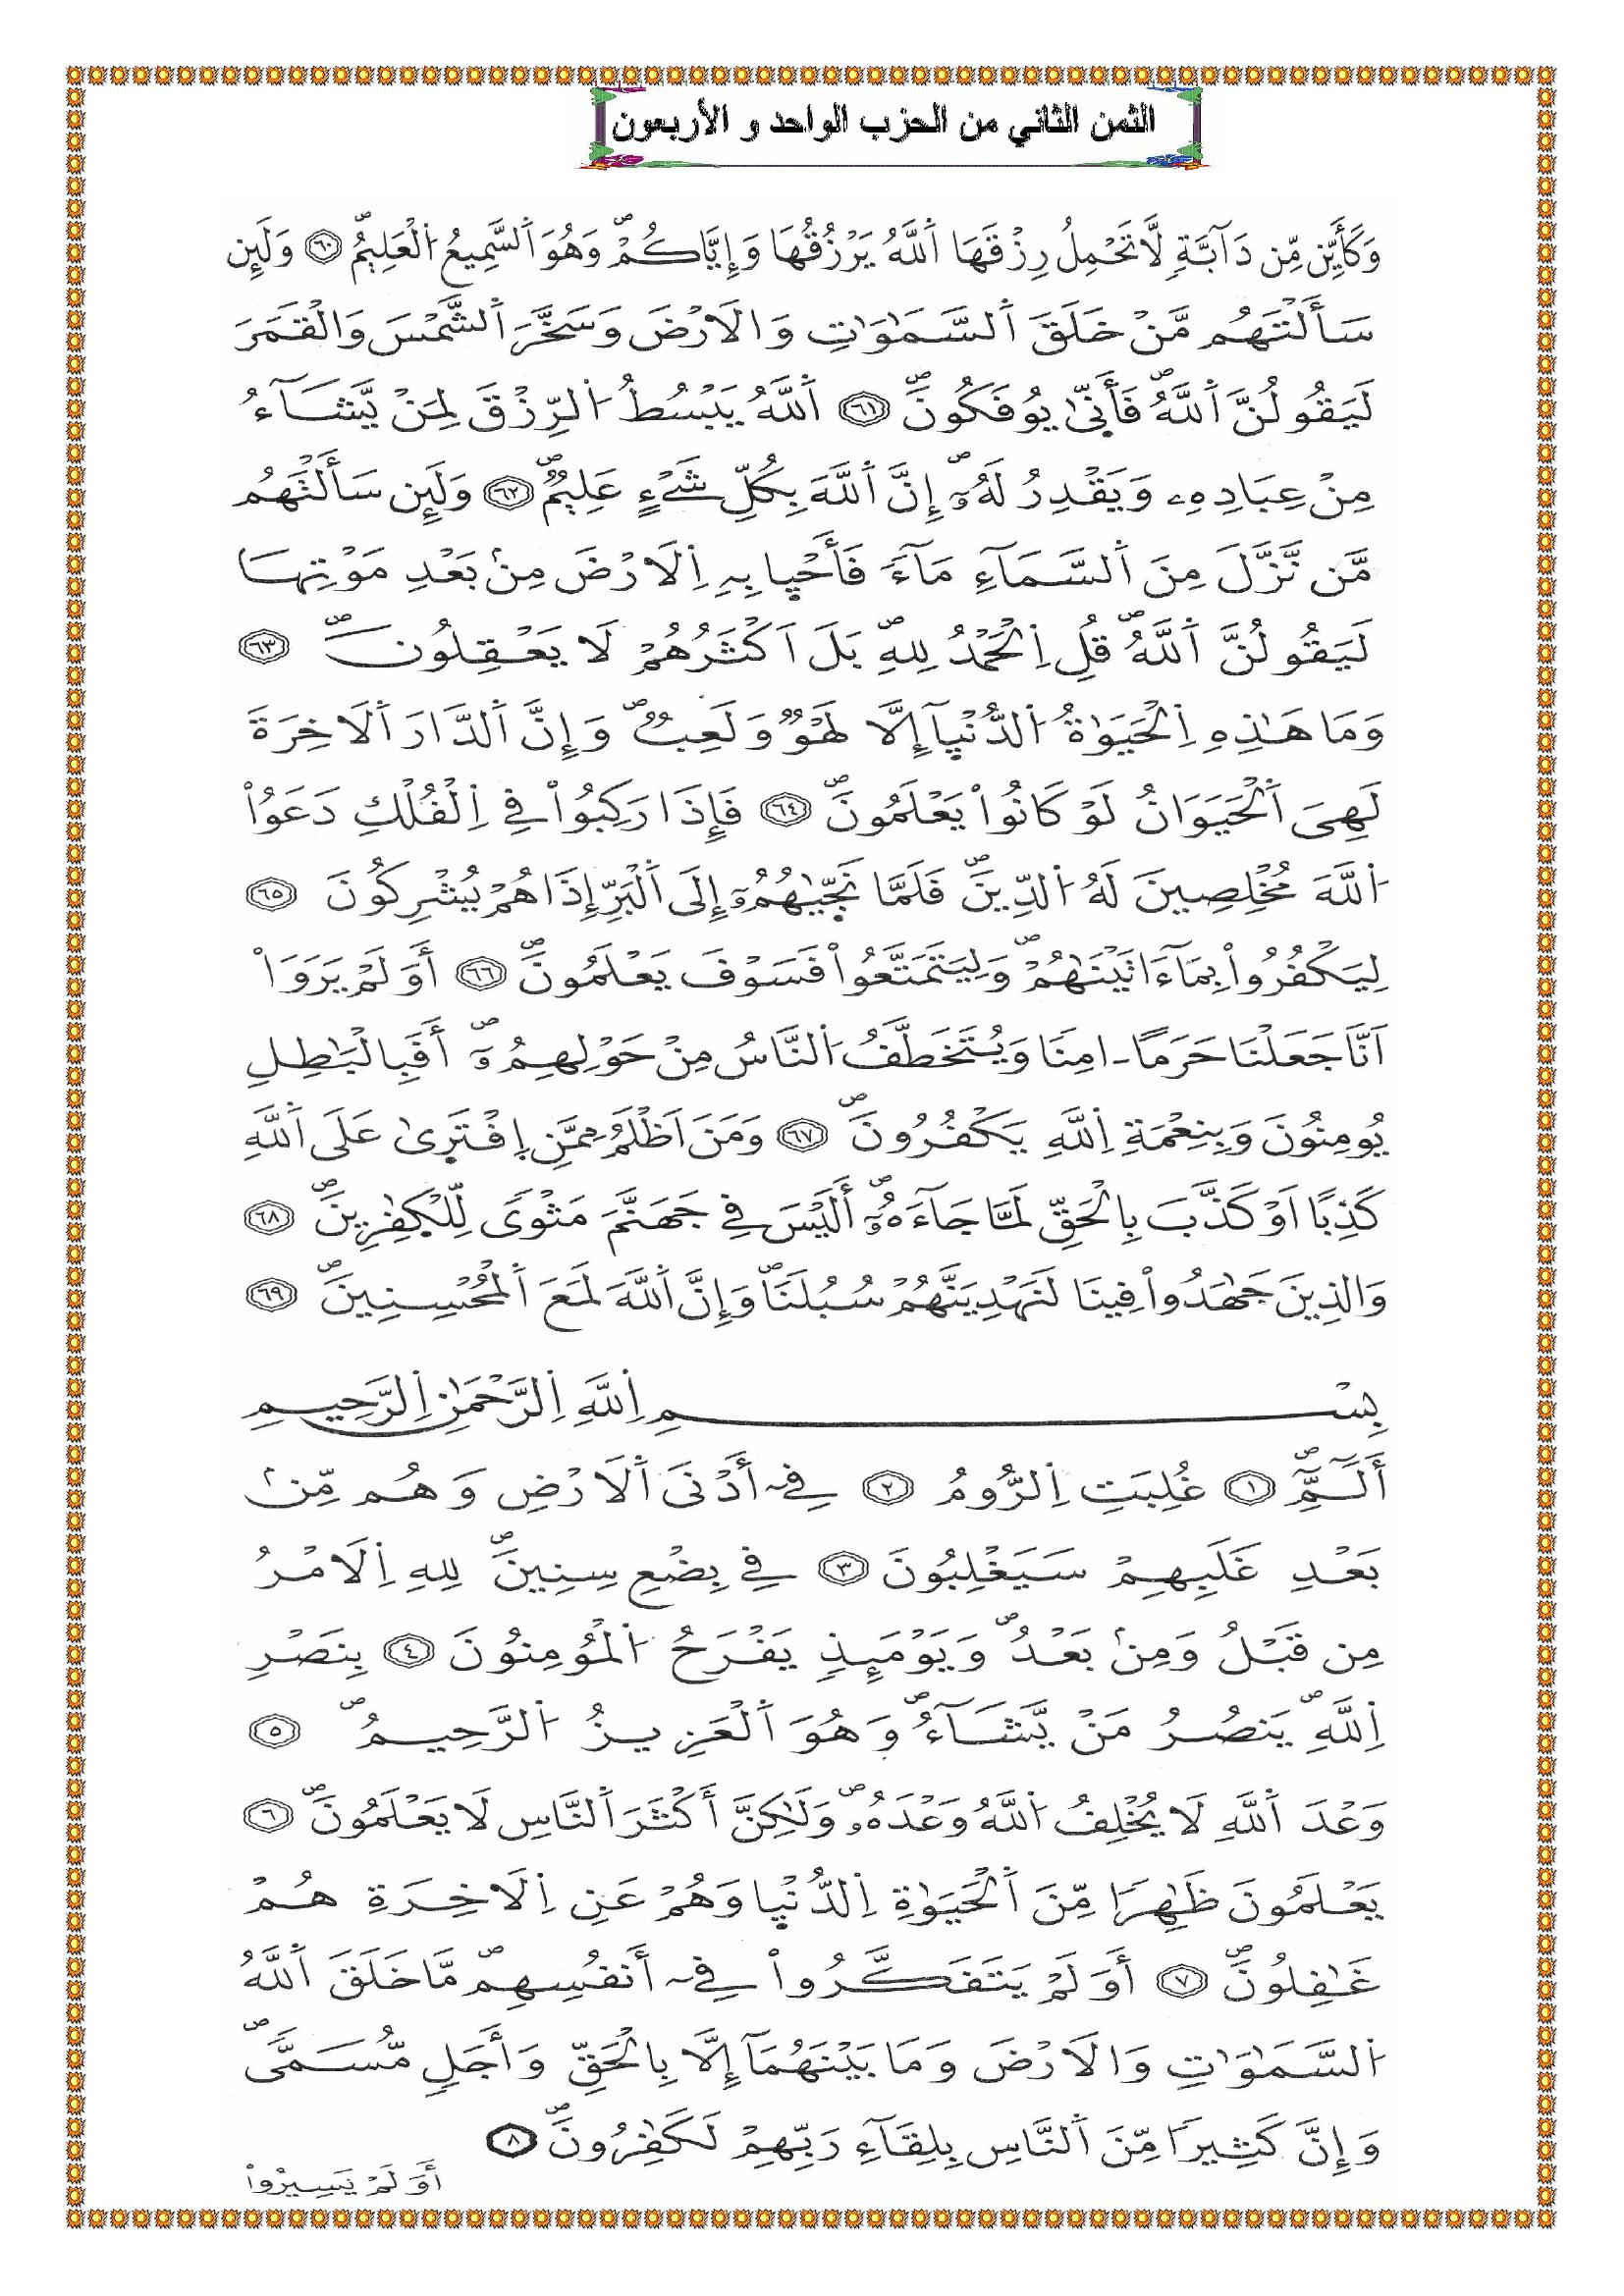 الثمن الثاني من الحزب الواحد و الأربعون
وَكَأَيِّن مِّن دَآبَّةٍ لَّا تَحْمِلُ رِزْقَهَا اَ۬للَّهُ يَرْزُقُهَا وَإِيَّاكُمْۖ وَهُوَ اَ۬لسَّمِيعُ اُ۬لْعَلِيمُۖ ٦٠ وَلَئِن
سَأَلْتَهُم مَّنْ خَلَقَ اَ۬لسَّمَٰوَٰتِ وَالَارْضَ وَسَخَّرَ اَ۬لشَّمْسَ وَالْقَمَرَ
لَيَقُولُنَّ اَ۬للَّهُۖ فَأَنّ۪يٰ يُوفَكُونَۖ ٦١ اَ۬للَّهُ يَبْسُطُ اُ۬لرِّزْقَ لِمَنْ يَّشَآءُ
مِنْ عِبَادِهِۦ وَيَقْدِرُ لَهُۥٓۖ إِنَّ اَ۬للَّهَ بِكُلِّ شَےْءٍ عَلِيمٞۖ ٦٢ وَلَئِن سَأَلْتَهُم
مَّن نَّزَّلَ مِنَ اَ۬لسَّمَآءِ مَآءٗ فَأَحْي۪ا بِهِ اِ۬لَارْضَ مِنۢ بَعْدِ مَوْتِهَا
لَيَقُولُنَّ اَ۬للَّهُۖ قُلِ اِ۬لْحَمْدُ لِلهِۖ بَلَ اَكْثَرُهُمْ لَا يَعْقِلُونَۖ ٦٣
وَمَا هَٰذِهِ اِ۬لْحَيَوٰةُ اُ۬لدُّنْي۪آ إِلَّا لَهْوٞ وَلَعِبٞۖ وَإِنَّ اَ۬لدَّارَ اَ۬لَاخِرَةَ
لَهِيَ اَ۬لْحَيَوَانُ لَوْ كَانُواْ يَعْلَمُونَۖ ٦٤ فَإِذَا رَكِبُواْ فِے اِ۬لْفُلْكِ دَعَوُاْ
اُ۬للَّهَ مُخْلِصِينَ لَهُ اُ۬لدِّينَۖ فَلَمَّا نَجّ۪يٰهُمُۥٓ إِلَي اَ۬لْبَرِّ إِذَا هُمْ يُشْرِكُونَ ٦٥
لِيَكْفُرُواْ بِمَآ ءَاتَيْنَٰهُمْۖ وَلِيَتَمَتَّعُواْ فَسَوْفَ يَعْلَمُونَۖ ٦٦ أَوَلَمْ يَرَوَاْ
اَنَّا جَعَلْنَا حَرَماً اٰمِنَا وَيُتَخَطَّفُ اُ۬لنَّاسُ مِنْ حَوْلِهِمُۥٓۖ أَفَبِالْبَٰطِلِ
يُومِنُونَ وَبِنِعْمَةِ اِ۬للَّهِ يَكْفُرُونَۖ ٦٧ وَمَنَ اَظْلَمُ مِمَّنِ اِ۪فْتَر۪يٰ عَلَي اَ۬للَّهِ
كَذِباً اَوْ كَذَّبَ بِالْحَقِّ لَمَّا جَآءَهُۥٓۖ أَلَيْسَ فِے جَهَنَّمَ مَثْوٗي لِّلْكٰ۪فِرِينَۖ ٦٨
وَالذِينَ جَٰهَدُواْ فِينَا لَنَهْدِيَنَّهُمْ سُبُلَنَاۖ وَإِنَّ اَ۬للَّهَ لَمَعَ اَ۬لْمُحْسِنِينَۖ ٦٩
بِسْمِ اِ۬للَّهِ اِ۬لرَّحْمَٰنِ اِ۬لرَّحِيمِ
أَلَٓمِّٓۖ ١ غُلِبَتِ اِ۬لرُّومُ ٢ فِےٓ أَدْنَي اَ۬لَارْضِ وَهُم مِّنۢ
بَعْدِ غَلَبِهِمْ سَيَغْلِبُونَ ٣ فِے بِضْعِ سِنِينَۖ لِلهِ اِ۬لَامْرُ
مِن قَبْلُ وَمِنۢ بَعْدُۖ وَيَوْمَئِذٖ يَفْرَحُ اُ۬لْمُومِنُونَ ٤ بِنَصْرِ
اِ۬للَّهِۖ يَنصُرُ مَنْ يَّشَآءُۖ وَهُوَ اَ۬لْعَزِيزُ اُ۬لرَّحِيمُۖ ٥
وَعْدَ اَ۬للَّهِ لَا يُخْلِفُ اُ۬للَّهُ وَعْدَهُۥۖ وَلَٰكِنَّ أَكْثَرَ اَ۬لنَّاسِ لَا يَعْلَمُونَۖ ٦
يَعْلَمُونَ ظَٰهِراٗ مِّنَ اَ۬لْحَيَوٰةِ اِ۬لدُّنْي۪ا وَهُمْ عَنِ اِ۬لَاخِرَةِ هُمْ
غَٰفِلُونَۖ ٧ أَوَلَمْ يَتَفَكَّرُواْ فِےٓ أَنفُسِهِمۖ مَّا خَلَقَ اَ۬للَّهُ
اُ۬لسَّمَٰوَٰتِ وَالَارْضَ وَمَا بَيْنَهُمَآ إِلَّا بِالْحَقِّ وَأَجَلٖ مُّسَمّٗيۖ
وَإِنَّ كَثِيراٗ مِّنَ اَ۬لنَّاسِ بِلِقَآءِ رَبِّهِمْ لَكَٰفِرُونَۖ ٨
أَوَلَمْ يَسِيرُواْ